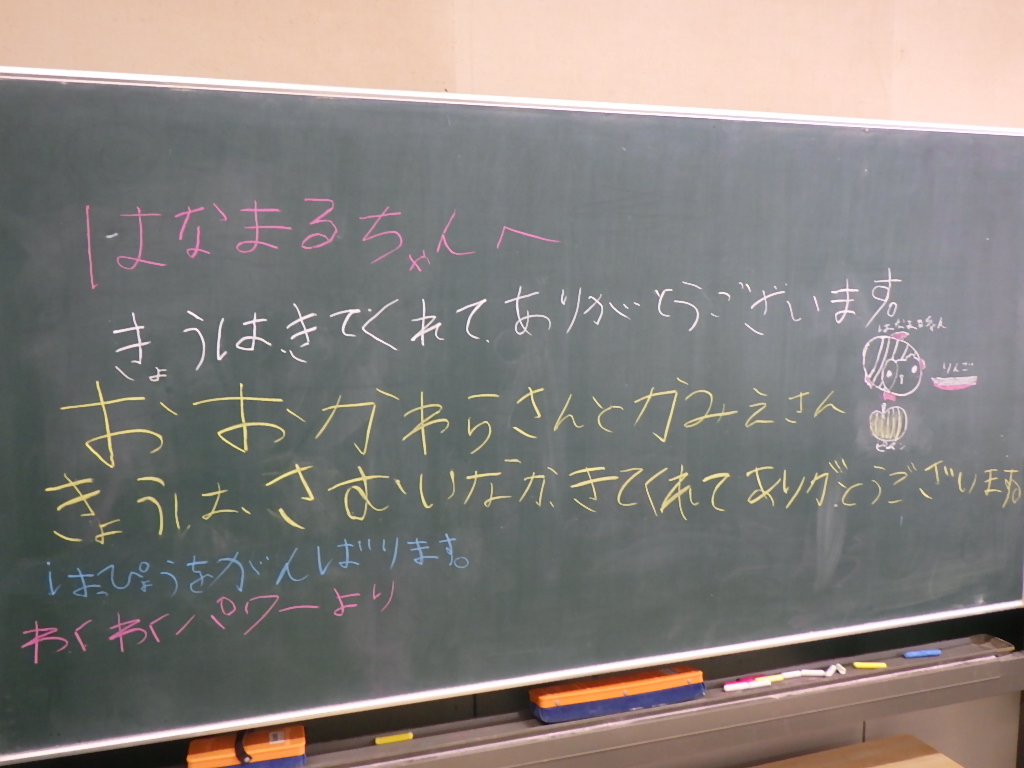 はなまるちゃんへ
きょうは、きてくれて、ありがとうございます
おおがわらさんとがみえさん
きょうは、さむいなか、きてくれてありがとうございます。
はっぴょうをがんばります。
わくわくパワーより
はなまるちゃん
りんご